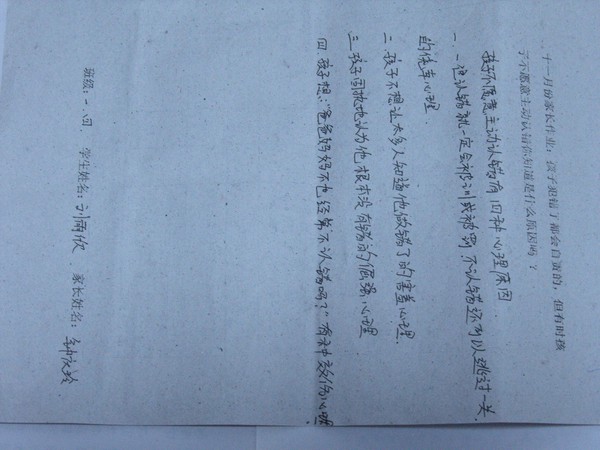 十一月份家长作业：孩子犯错了都会自责的，但有时孩
子不愿意主动认错你知道是什么原因吗？
孩子不愿意主动认错有四种心理原因
一.一但认错就一定会被训或被骂.不认错还可以逃过一关.
的侥幸心理.
二.孩子不想让太多人知道他做错了的害羞心理.
三.孩子固执地认为他根本没有错的倔强心理
四.孩子想:"爸爸妈妈不也经常不认错吗?"有种效仿心理
班级：一.四. 学生姓名：刘雨欣 家长姓名：